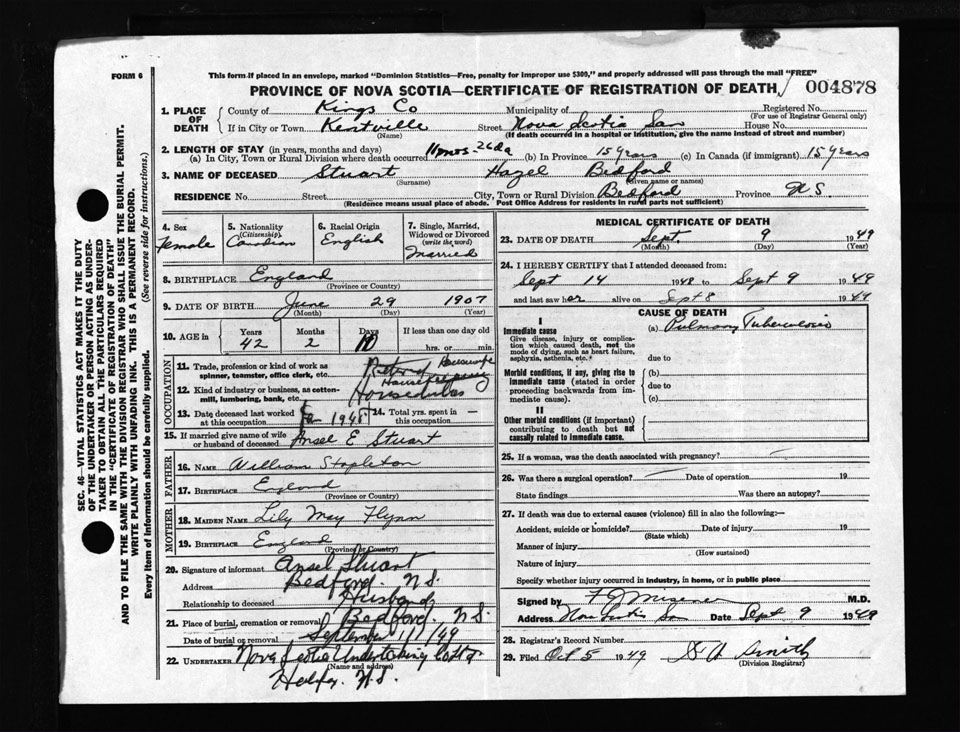 FORM 6
This form if placed in an envelope, marked "Dominion Statistics—Free, penalty for improper use $300," and properly addressed will pass through the mail "FREE"
PROVINCE OF NOVA SCOTIA—CERTIFICATE OF REGISTRATION OF DEATH 004878
1. PLACE OF DEATH County of Kings Co Municipality of Registered No.
(For use of Registrar General only)
If in City or Town Kentville Street Nova Scotia San House No.
(Name) (If death occurred in a hospital or institution, give the name instead of street and number)
2. LENGTH OF STAY (in years, months and days)
(a) In City, Town or Rural Division where death occurred 11 mos - 26 da (b) In Province 15 years (c) In Canada (if immigrant) 15 years
3. NAME OF DECEASED Stuart Hazel Bedford
(Surname) (Given name or names)
RESIDENCE No. Street City, Town or Rural Division Bedford Province N S.
(Residence means usual place of abode. Post Office Address for residents of rural parts not sufficient)
4. Sex Female
5. Nationality (Citizenship) Canadian
6. Racial Origin English
7. Single, Married, Widowed or Divorced (write the word) Married
8. BIRTHPLACE England
(Province or Country)
9. DATE OF BIRTH June 29 1907
(Month) (Day) (Year)
10. AGE in Years Months Days If less than one day old
42 2 10 hrs. or min.
OCCUPATION
11. Trade, profession or kind of work as spinner, teamster, office clerk, etc. Housewife
12. Kind of industry or business, as cotton-mill, lumbering, bank, etc.
13. Date deceased last worked at this occupation 14. Total yrs. spent in this occupation
15. If married give name of wife or husband of deceased Ansel E Stuart
FATHER
16. NAME William Stapleton
17. BIRTHPLACE England
(Province or Country)
MOTHER
18. MAIDEN NAME Lily May Flynn
19. BIRTHPLACE England
(Province or Country)
20. Signature of informant Ansel Stuart
Address Bedford. N.S.
Relationship to deceased Husband
21. Place of burial, cremation or removal Bedford. N.S.
Date of burial or removal September 11/49
22. UNDERTAKER Nova Scotia Undertaking Co Ltd
(Name and address)
Halifax. N.S.
MEDICAL CERTIFICATE OF DEATH
23. DATE OF DEATH Sept. 9 1949
(Month) (Day) (Year)
24. I HEREBY CERTIFY that I attended deceased from:
Sept 14 1948 to Sept 9 1949
and last saw her alive on Sept 8 1949
CAUSE OF DEATH
I
Immediate cause (a) Pulmonary Tuberculosis
Give disease, injury or complication which caused death, not the mode of dying, such as heart failure, asphyxia, asthenia, etc.
due to
Morbid conditions, if any, giving rise to immediate cause (stated in order proceeding backwards from immediate cause).
(b)
due to
(c)
II
Other morbid conditions (if important) contributing to death but not causally related to immediate cause.
25. If a woman, was the death associated with pregnancy?
26. Was there a surgical operation? Date of operation 19
State findings Was there an autopsy?
27. If death was due to external causes (violence) fill in also the following:—
Accident, suicide or homicide? Date of injury 19
(State which)
Manner of injury
(How sustained)
Nature of injury
Specify whether injury occurred in industry, in home, or in public place
Signed by M.D.
Address Nova Scotia San Date Sept 9 1949
28. Registrar's Record Number
29. Filed Oct 5 1949 Smith
(Division Registrar)
SEC. 46—VITAL STATISTICS ACT MAKES IT THE DUTY
OF THE UNDERTAKER OR PERSON ACTING AS UNDER-
TAKER TO OBTAIN ALL THE PARTICULARS REQUIRED
IN THE "CERTIFICATE OF REGISTRATION OF DEATH"
AND TO FILE THE SAME WITH THE DIVISION REGISTRAR WHO SHALL ISSUE THE BURIAL PERMIT.
WRITE PLAINLY WITH UNFADING INK. THIS IS A PERMANENT RECORD.
Every item of information should be carefully supplied. (See reverse side for instructions.)